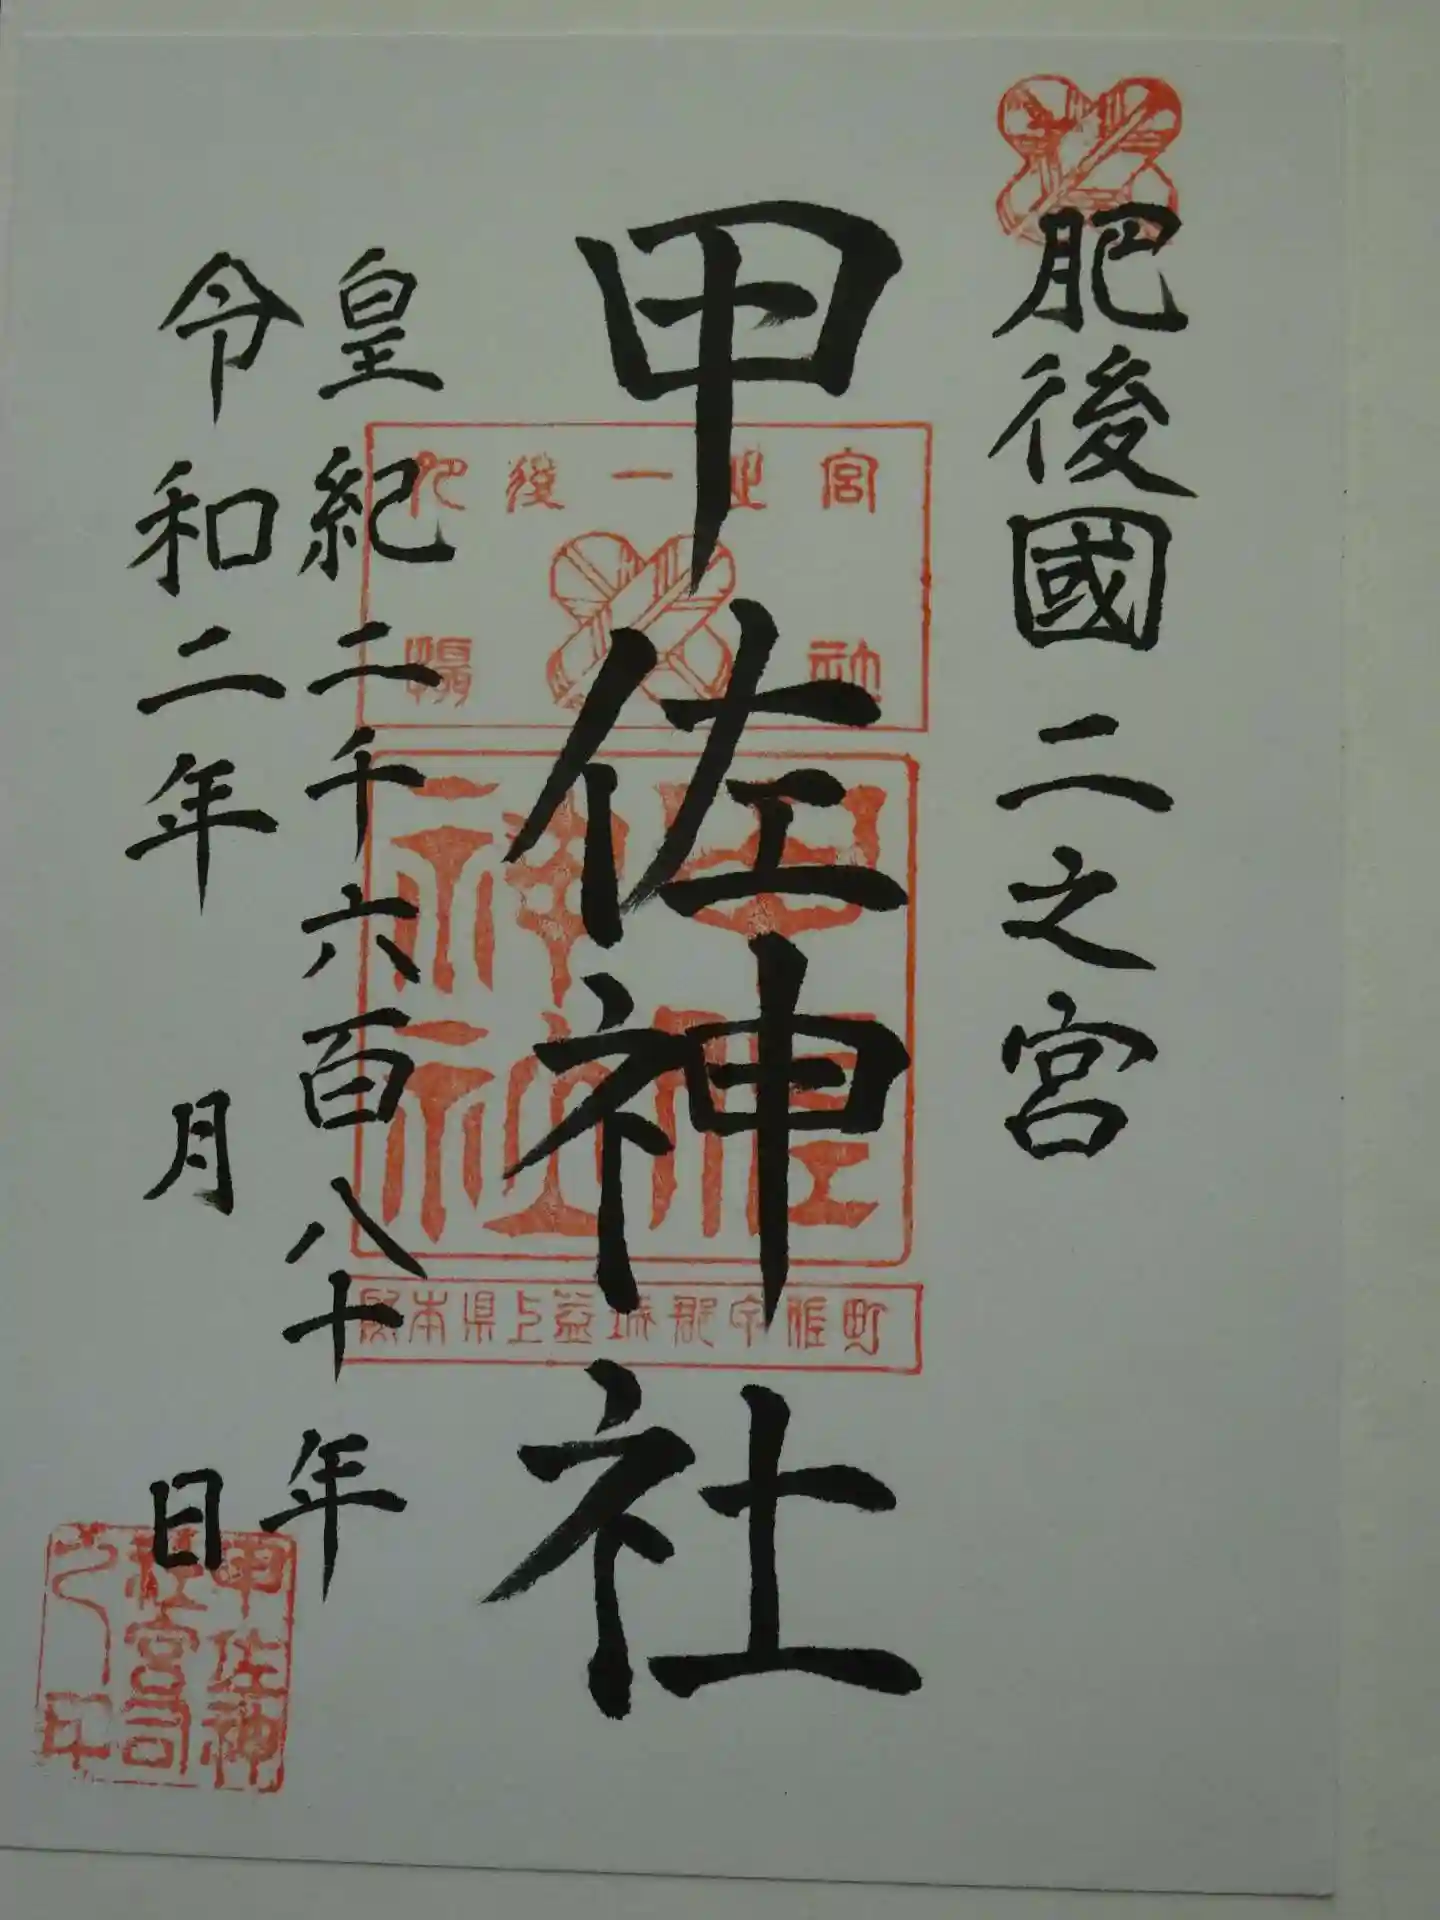 肥後國二之宮
甲佐神社
皇紀二千六百八十年
令和二年 月 日
甲佐神社
熊本県上益城郡甲佐町
甲佐神社宮司之印